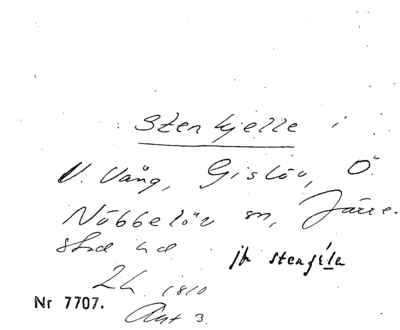 Stenkjelle i
V. Vång, Gislöv, Ö.
Nöbbelöv sn, Järre-
stad hd
jfr stengíla
Lh 1810
Nr 7707.
Akt 3.